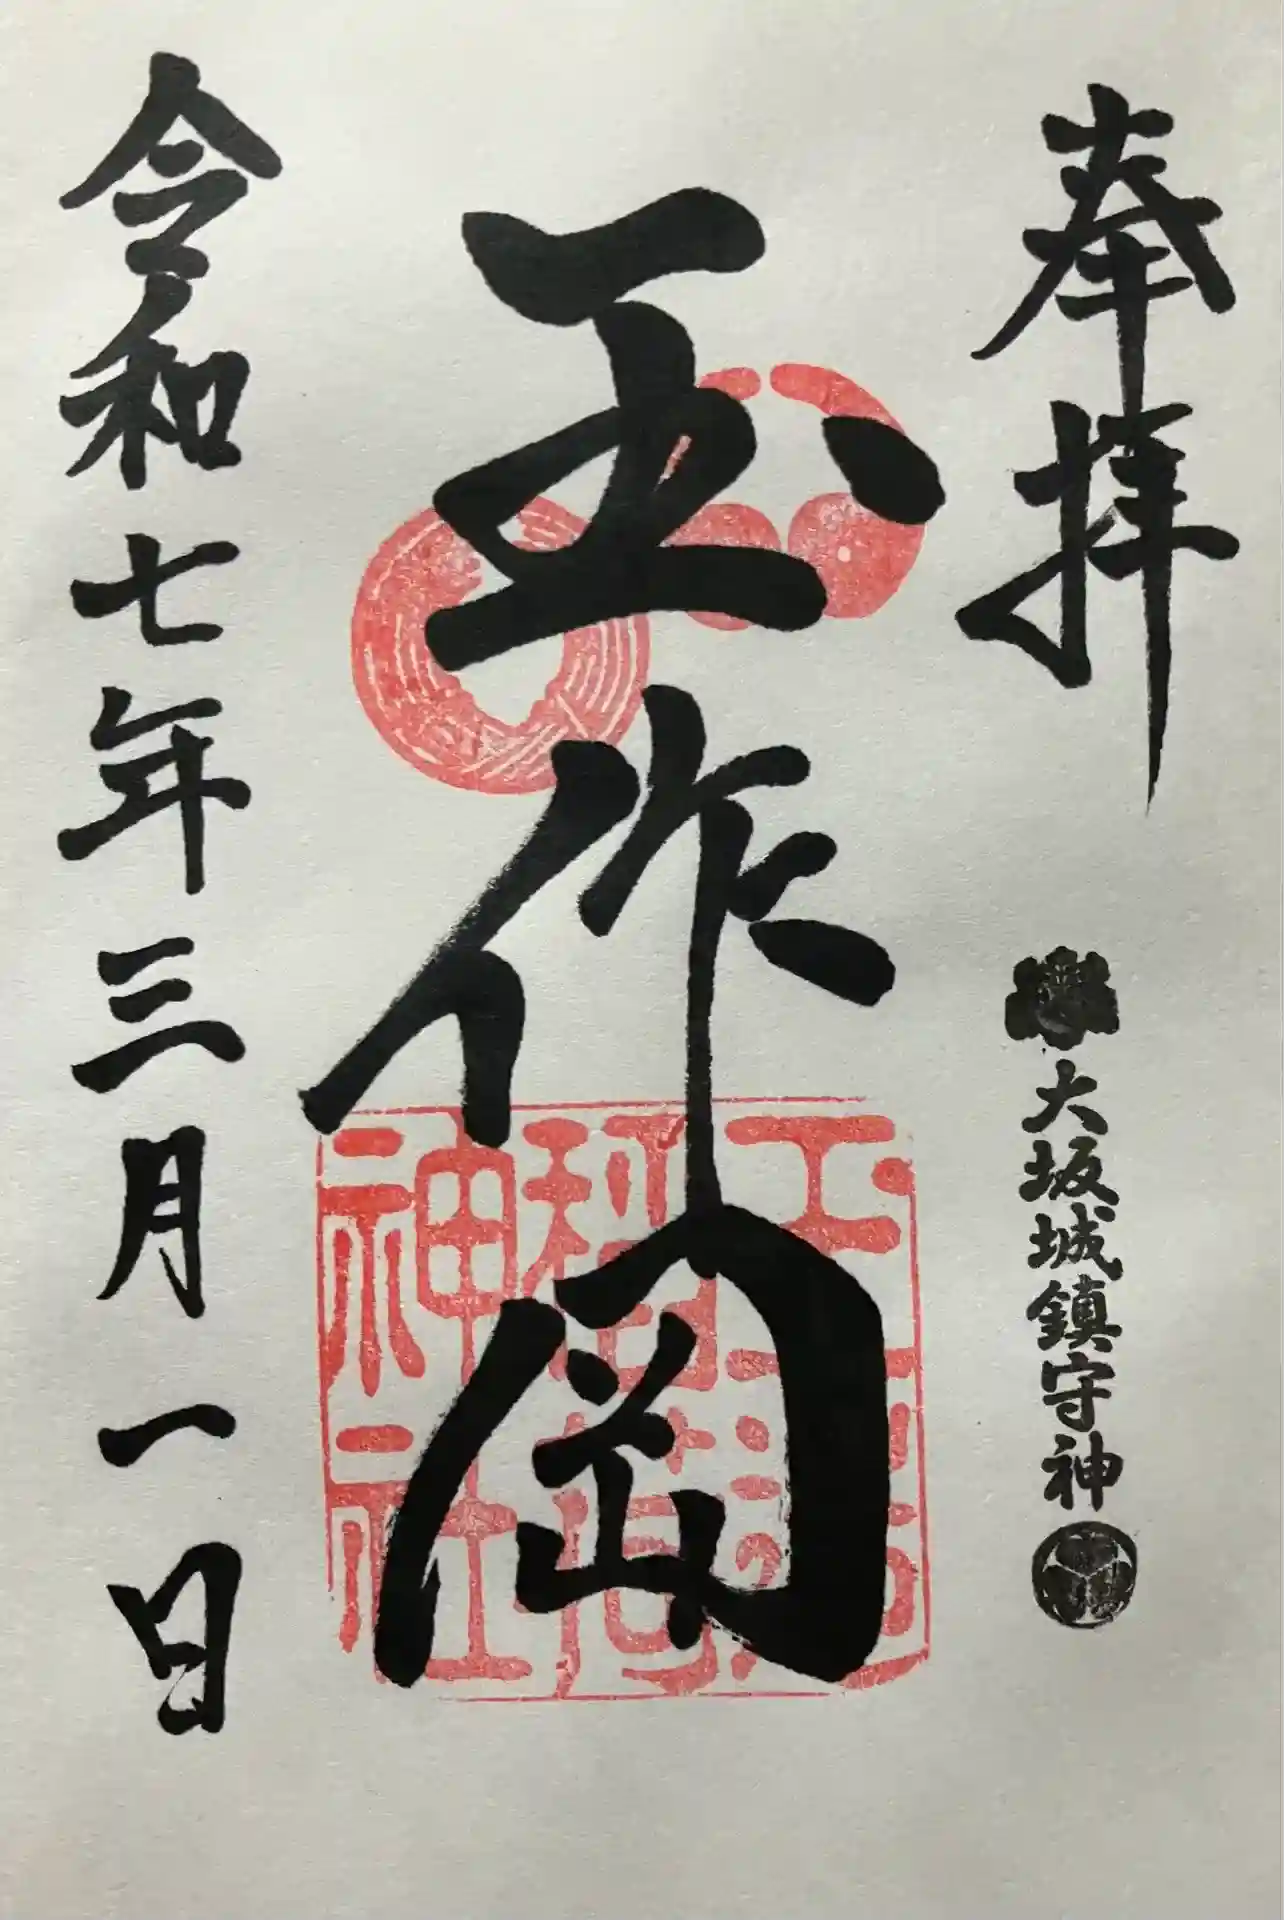 奉拝
大坂城鎮守神
玉作岡
玉造稲荷神社
令和七年三月一日